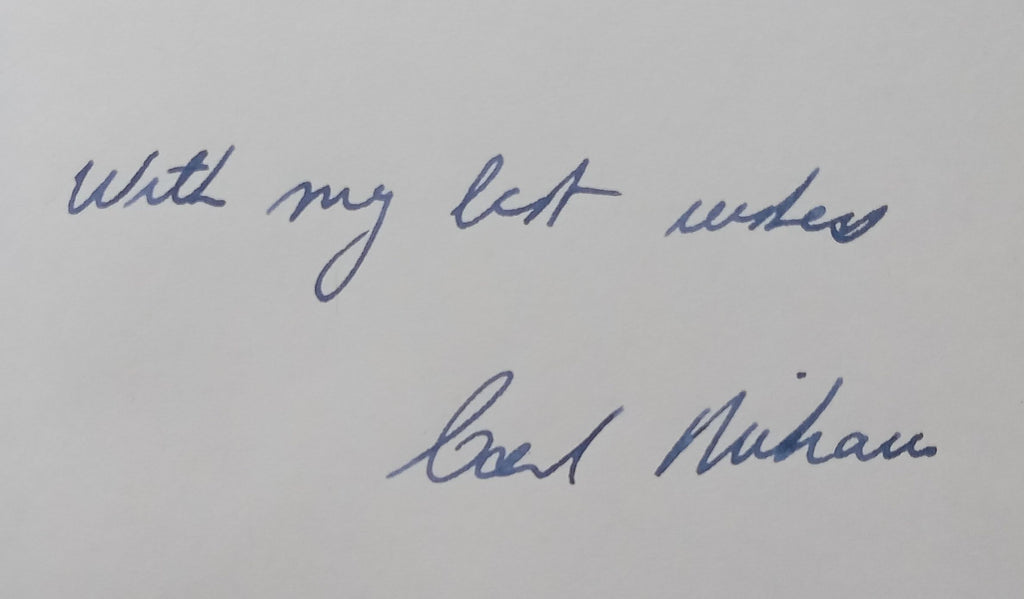 With my best wishes
Carl